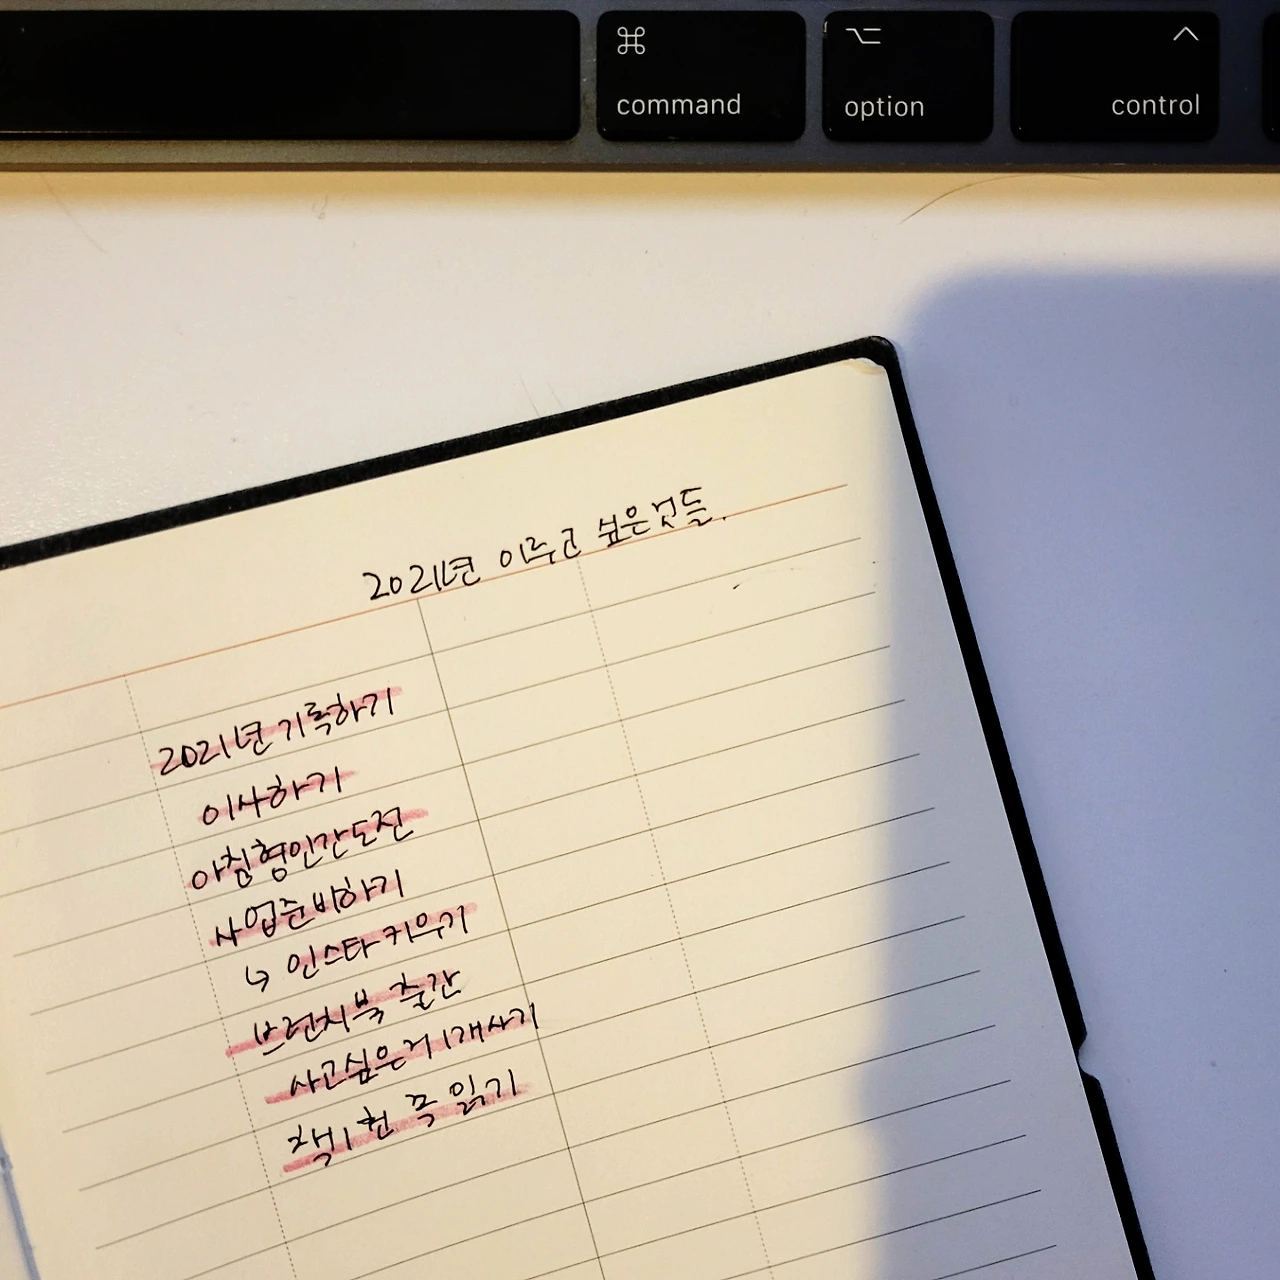 ⌘
command
⌥
option
^
control
2021년 이루고 싶은것들.
2021년 기록하기
이사하기
아침형인간도전
사업준비하기
↳ 인스타 키우기
브런치북 출간
사고싶은거 1개사기
책 1권 쭉 읽기